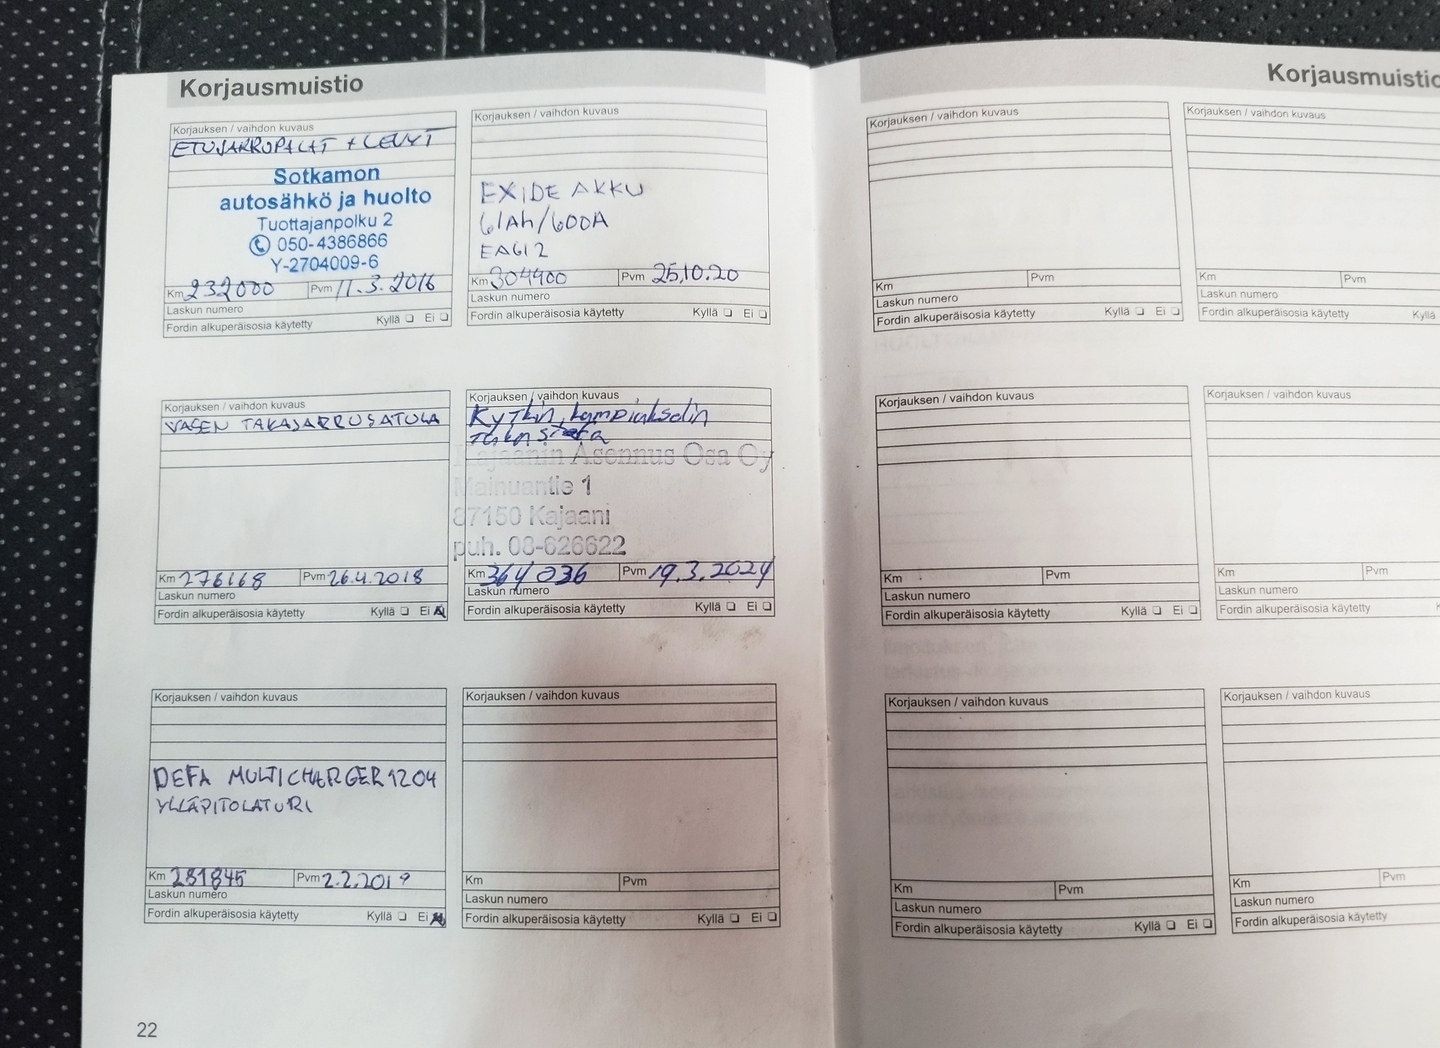 Korjausmuistio
Korjauksen / vaihdon kuvaus
ETUJARRUPALAT + LEVYT
Sotkamon
autosähkö ja huolto
Tuottajanpolku 2
050-4386866
Y-2704009-6
Km 232000 Pvm 11.3.2016
Laskun numero
Fordin alkuperäisosia käytetty Kyllä ❏ Ei ❏
Korjauksen / vaihdon kuvaus
EXIDE AKKU
61Ah/600A
EA612
Km 304400 Pvm 25.10.20
Laskun numero
Fordin alkuperäisosia käytetty Kyllä ❏ Ei ❏
Korjauksen / vaihdon kuvaus
VASEN TAKAJARRUSATULA
Km 276168 Pvm 26.4.2018
Laskun numero
Fordin alkuperäisosia käytetty Kyllä ❏ Ei ☒
Korjauksen / vaihdon kuvaus
Kytkin, kampiakselin
Kajaanin Asennus Osa Oy
Mainuantie 1
87150 Kajaani
puh. 08-626622
Km 364 036 Pvm 19.3.2024
Laskun numero
Fordin alkuperäisosia käytetty Kyllä ❏ Ei ❏
Korjauksen / vaihdon kuvaus
DEFA MULTICHARGER 1204
YLLÄPITOLATURI
Km 281845 Pvm 2.2.2019
Laskun numero
Fordin alkuperäisosia käytetty Kyllä ❏ Ei ☒
Korjauksen / vaihdon kuvaus
Km Pvm
Laskun numero
Fordin alkuperäisosia käytetty Kyllä ❏ Ei ❏
22
Korjausmuistio
Korjauksen / vaihdon kuvaus
Km Pvm
Laskun numero
Fordin alkuperäisosia käytetty Kyllä ❏ Ei ❏
Korjauksen / vaihdon kuvaus
Km Pvm
Laskun numero
Fordin alkuperäisosia käytetty Kyllä
Korjauksen / vaihdon kuvaus
Km Pvm
Laskun numero
Fordin alkuperäisosia käytetty Kyllä ❏ Ei ❏
Korjauksen / vaihdon kuvaus
Km Pvm
Laskun numero
Fordin alkuperäisosia käytetty
Korjauksen / vaihdon kuvaus
Km Pvm
Laskun numero
Fordin alkuperäisosia käytetty Kyllä ❏ Ei ❏
Korjauksen / vaihdon kuvaus
Km Pvm
Laskun numero
Fordin alkuperäisosia käytetty